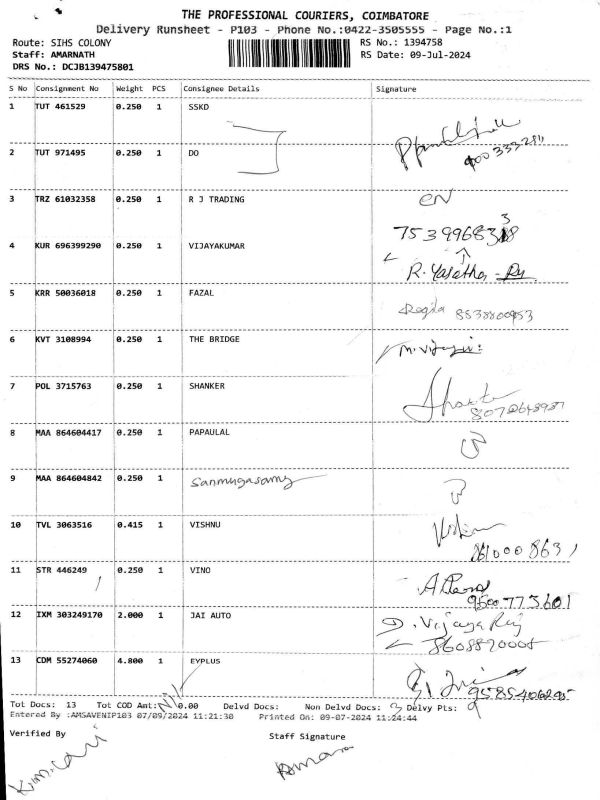 THE PROFESSIONAL COURIERS, COIMBATORE
Delivery Runsheet - P103 - Phone No.:0422-3505555 - Page No.:1
Route: SIHS COLONY RS No.: 1394758
Staff: AMARNATH RS Date: 09-Jul-2024
DRS No.: DCJB139475801
S No Consignment No Weight PCS Consignee Details Signature
1 TUT 461529 0.250 1 SSKD
2 TUT 971495 0.250 1 DO
3 TRZ 61032358 0.250 1 R J TRADING
4 KUR 696399290 0.250 1 VIJAYAKUMAR
5 KRR 50036018 0.250 1 FAZAL
6 KVT 3108994 0.250 1 THE BRIDGE
7 POL 3715763 0.250 1 SHANKER
8 MAA 864604417 0.250 1 PAPAULAL
9 MAA 864604842 0.250 1 Sanmugasamy
10 TVL 3063516 0.415 1 VISHNU
11 STR 446249 0.250 1 VINO
9500773601
12 IXM 303249170 2.000 1 JAI AUTO
D. Vijaya Raj
13 CDM 55274060 4.800 1 EYPLUS
Tot Docs: 13 Tot COD Amt: Nil 0.00 Delvd Docs: Non Delvd Docs: 3 Delvy Pts: 9
Entered By :AMSAVENIP103 07/09/2024 11:21:30 Printed On: 09-07-2024 11:24:44
Verified By Staff Signature